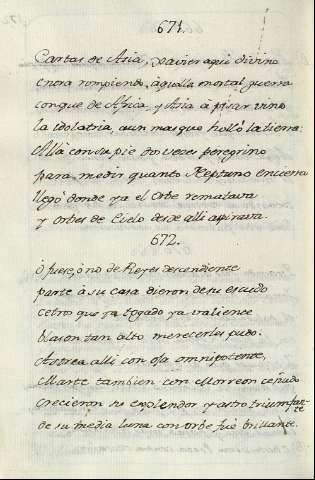 671.
Cartas de Asia, Xavier aqui divino
enora rompiendo, aqualla mortal guerra
con que de Africa, y Asia à pisar vino
la idolatria aun mas que holló la tierra:
Allà con su pie dos veces peregrino
para medir quanto Neptuno encierra
llegò donde ya el Orbe rematava
y orbes de Cielo desde alli aspirava.
672.
Ò fuese, ò no de Reyes descendiente
parte à su casa dieron, de su escudo
cetro que ya togado ya valiente
blason tan alto merecerles pudo.
Astrea alli con osa omnipotente,
Marte tambien con Morreon ceñudo
crecieron su esplendor y astro triumfante
de su media luna con orbe fuè brillante.